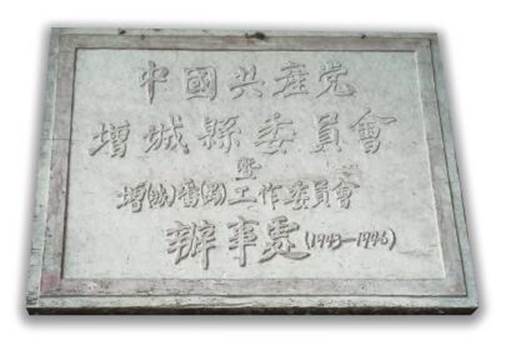 中國共産党
增城縣委員會
暨
增(城)番(禺)工作委員會
辦事處(1943—1946)